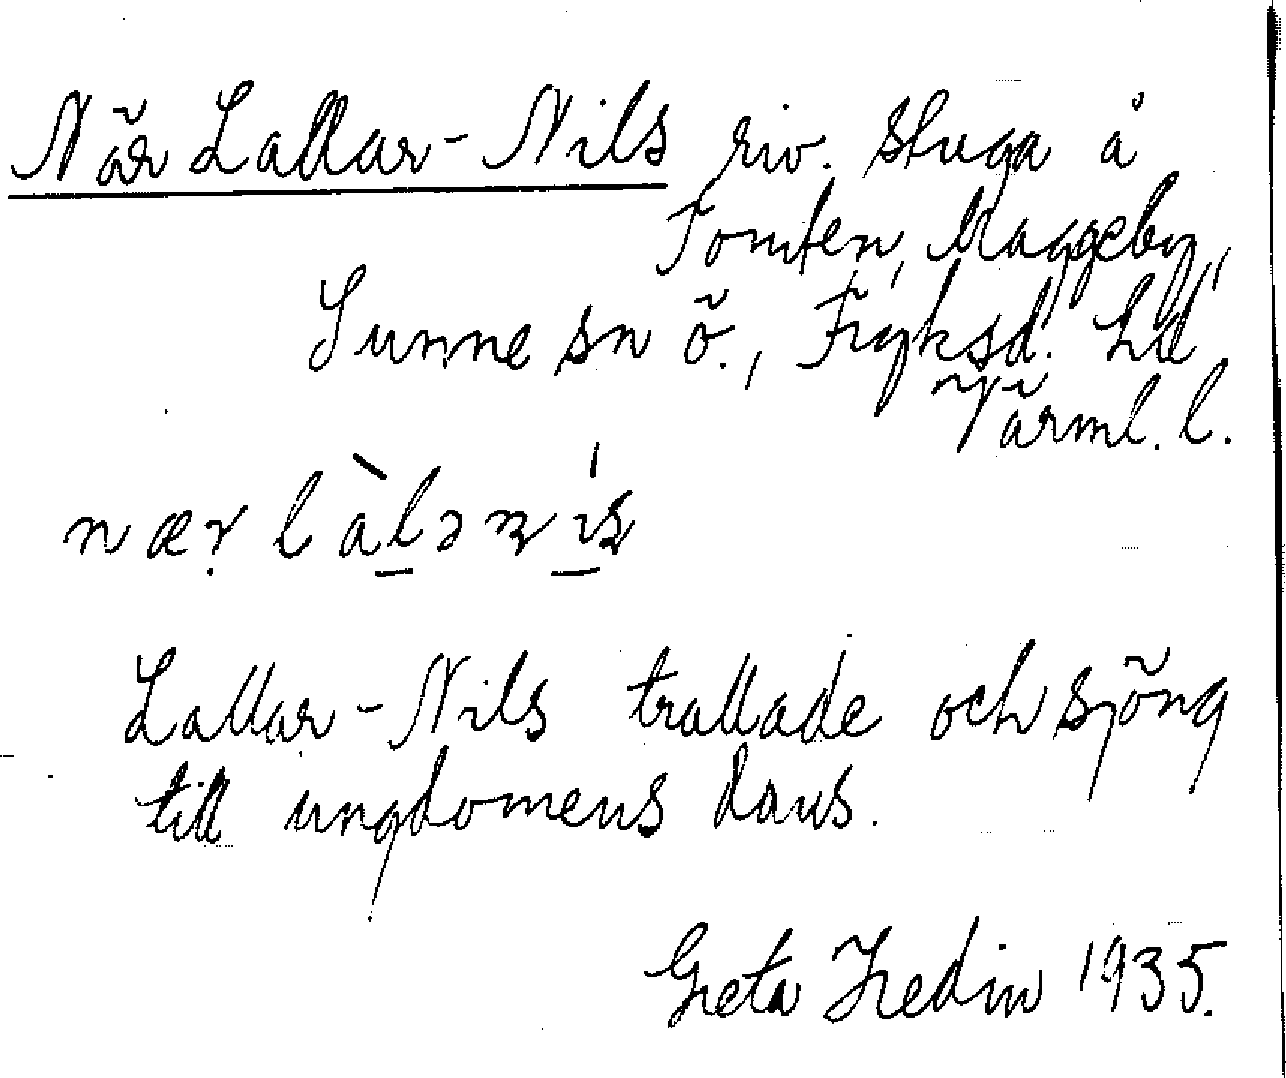 När Lallar-Nils riv. stuga å
Tomten, Maggeby,
Sunne sn ö., Fryksd. hd,
Värml. l.
Lallar-Nils trallade och sjöng
till ungdomens dans.
Greta Hedin 1935.